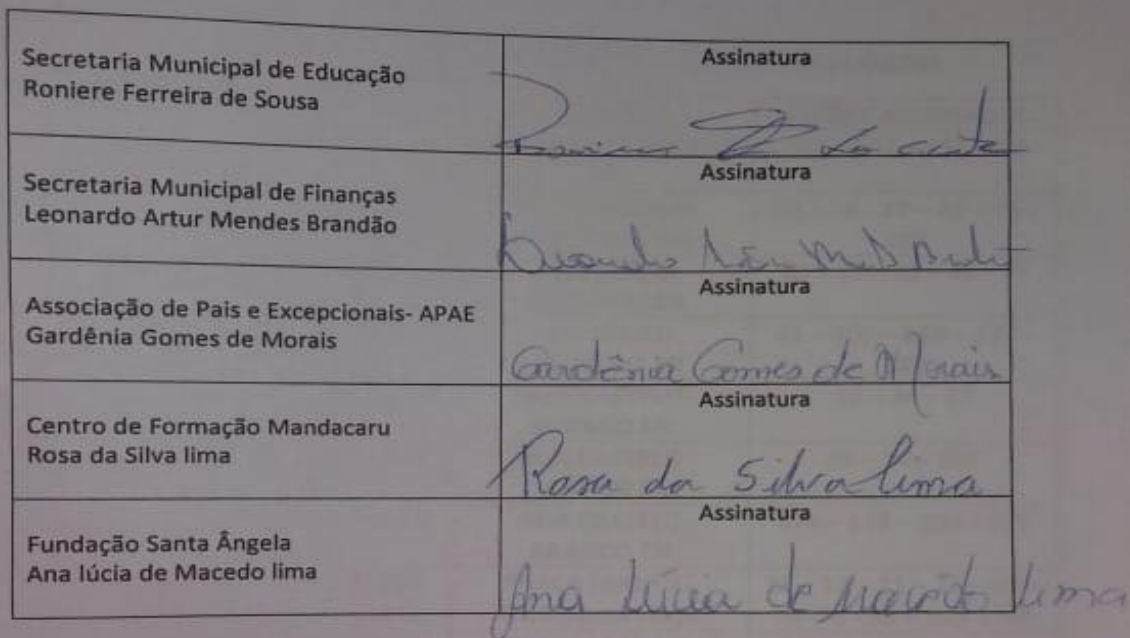 Secretaria Municipal de Educação
Roniere Ferreira de Sousa
Assinatura
Secretaria Municipal de Finanças
Leonardo Artur Mendes Brandão
Assinatura
Associação de Pais e Excepcionais- APAE
Gardênia Gomes de Morais
Assinatura
Gardênia Gomes de Morais
Centro de Formação Mandacaru
Rosa da Silva lima
Assinatura
Rosa da Silva lima
Fundação Santa Ângela
Ana lúcia de Macedo lima
Assinatura
Ana Lúcia de Macedo Lima